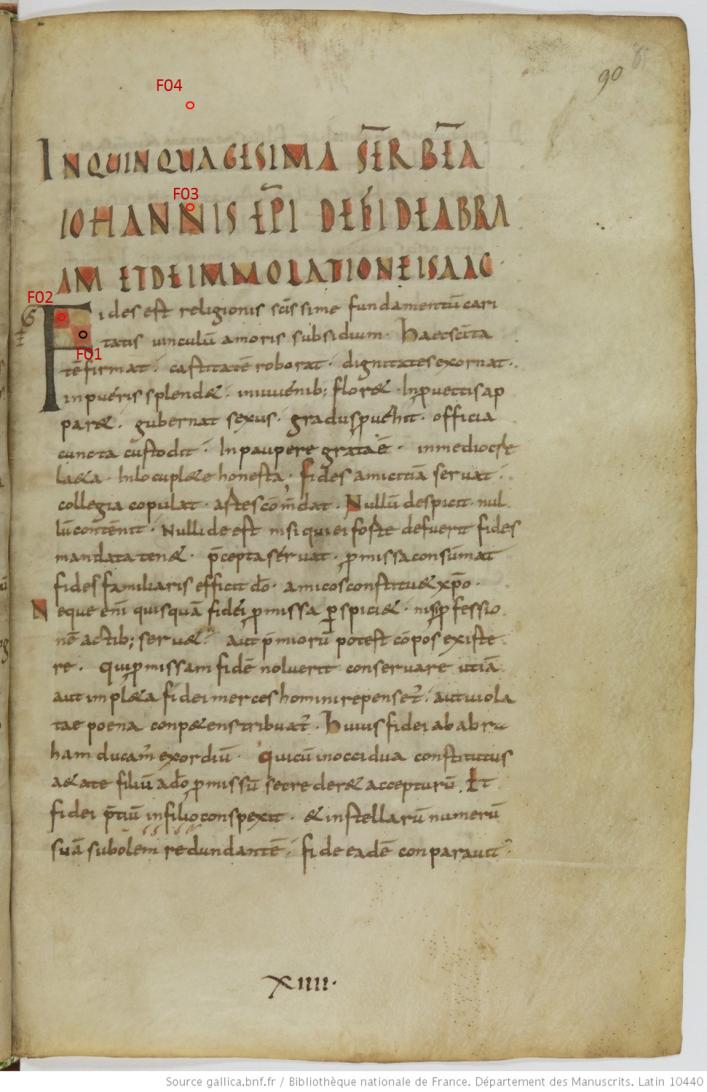 F04
90
IN QUINQUAGESIMA SER̄ BEA̅
IOHANNIS EP̅I DE FIDE ABRA
AM ET DE IMMOLATIONE ISAAC
F03
F02
F01
Fides est religionis sc̅issime fundamentū cari
tatis vinculū amoris subsidium. Haec sc̅ita
tē firmat. castitatē roborat. dignitates exornat.
in pueris splend&. in iuvenib; flor&. In p̱uectis ap
par&. gubernat sexus. gradus p̱uehit. officia
cuncta custodit. In paupere grata ē. in mediocre
l&a. In locupl&e honesta. fides amicitiā servat.
collegia copulat. artes com̅dat. Nullū despicit. nul
lū contēnit. Nulli deest nisi qui ei forte defuerit fides
mandata ten&. p̅cepta servat. p̱missa consūmat
fides familiaris efficit dō. amicos constitu& xp̅o.
Neque eni̅ quisquā fidei p̱missa p̱spici&. nisi p̱fessio
nē actib; serv&. aut p̅miorū potest cōpos existe
re. qui p̱missam fidē noluerit conservare
aut impl&a fidei merces homini repens&. aut viola
tae poena conp&ens tribuat. Huius fidei ab abra
ham ducam̅ exordiū. Quicū in occidua constitutus
a&ate filiū a dō p̱missū se credere& accepturū. Et
fidei p̅tiū in filio conspexit. & in stellarū numerū
suā subolem redundantē. fide eadē conparavit
XIIII.
Source gallica.bnf.fr / Bibliothèque nationale de France. Département des Manuscrits. Latin 10440